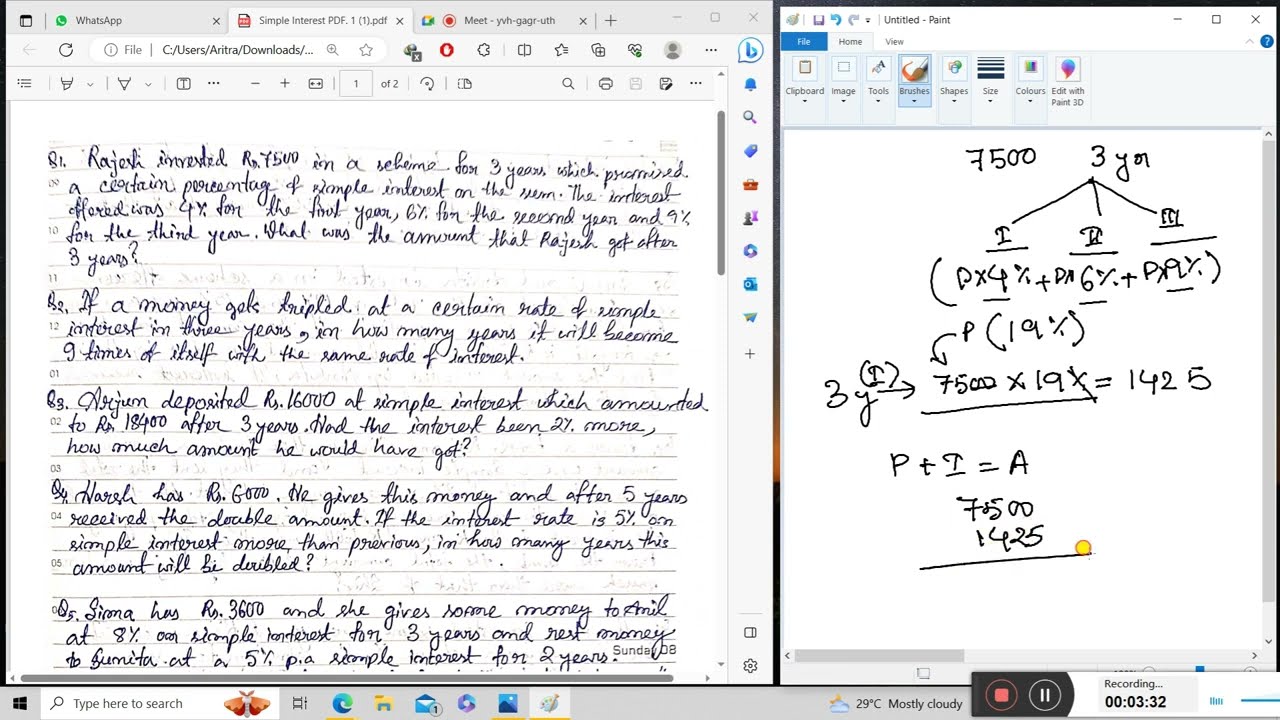 WhatsApp
Simple Interest PDF. 1 (1).pdf
Meet - yvh-gagr-uth
File
C:/Users/Aritra/Downloads/...
1
of 2
Q1. Rajesh invested Rs.7500 in a scheme for 3 years which promised
a certain percentag of simple interest on the sum. The interest
offered was 4% for the first year, 6% for the second year and 9%
10
for the third year. What was the amount that Rajesh got after
3 years?
11
Q2. If a money gets tripled at a certain rate of simple
12
interest in three years, in how many years it will become
9 times of itself with the same rate of interest.
01
Q3. Arjun deposited Rs.16000 at simple interest which amounted
02
to Rs. 18400 after 3 years. Had the interest been 2% more,
how much amount he would have got?
03
Q4. Harsh has Rs.6000. He gives this money and after 5 years
04
received the double amount. If the interest rate is 5% on
simple interest more than previous, in how many years this
05
amount will be doubled?
Q5. Sima has Rs.3600 and she gives some money to Anil
at 8% on simple interest for 3 years and rest money
Sunday 08
to Sumita at a 5% p.a simple interest for 2 years.
Untitled - Paint
File
Home
View
Clipboard
Image
Tools
Brushes
Shapes
Size
Colours
Edit with
Paint 3D
7500 3 yr
I II III
(P×4% + P×6% + P×9%)
P (19%)
3 y (I) → 7500 × 19% = 1425
P + I = A
7500
1425
Type here to search
1
29°C Mostly cloudy
Recording...
00:03:32